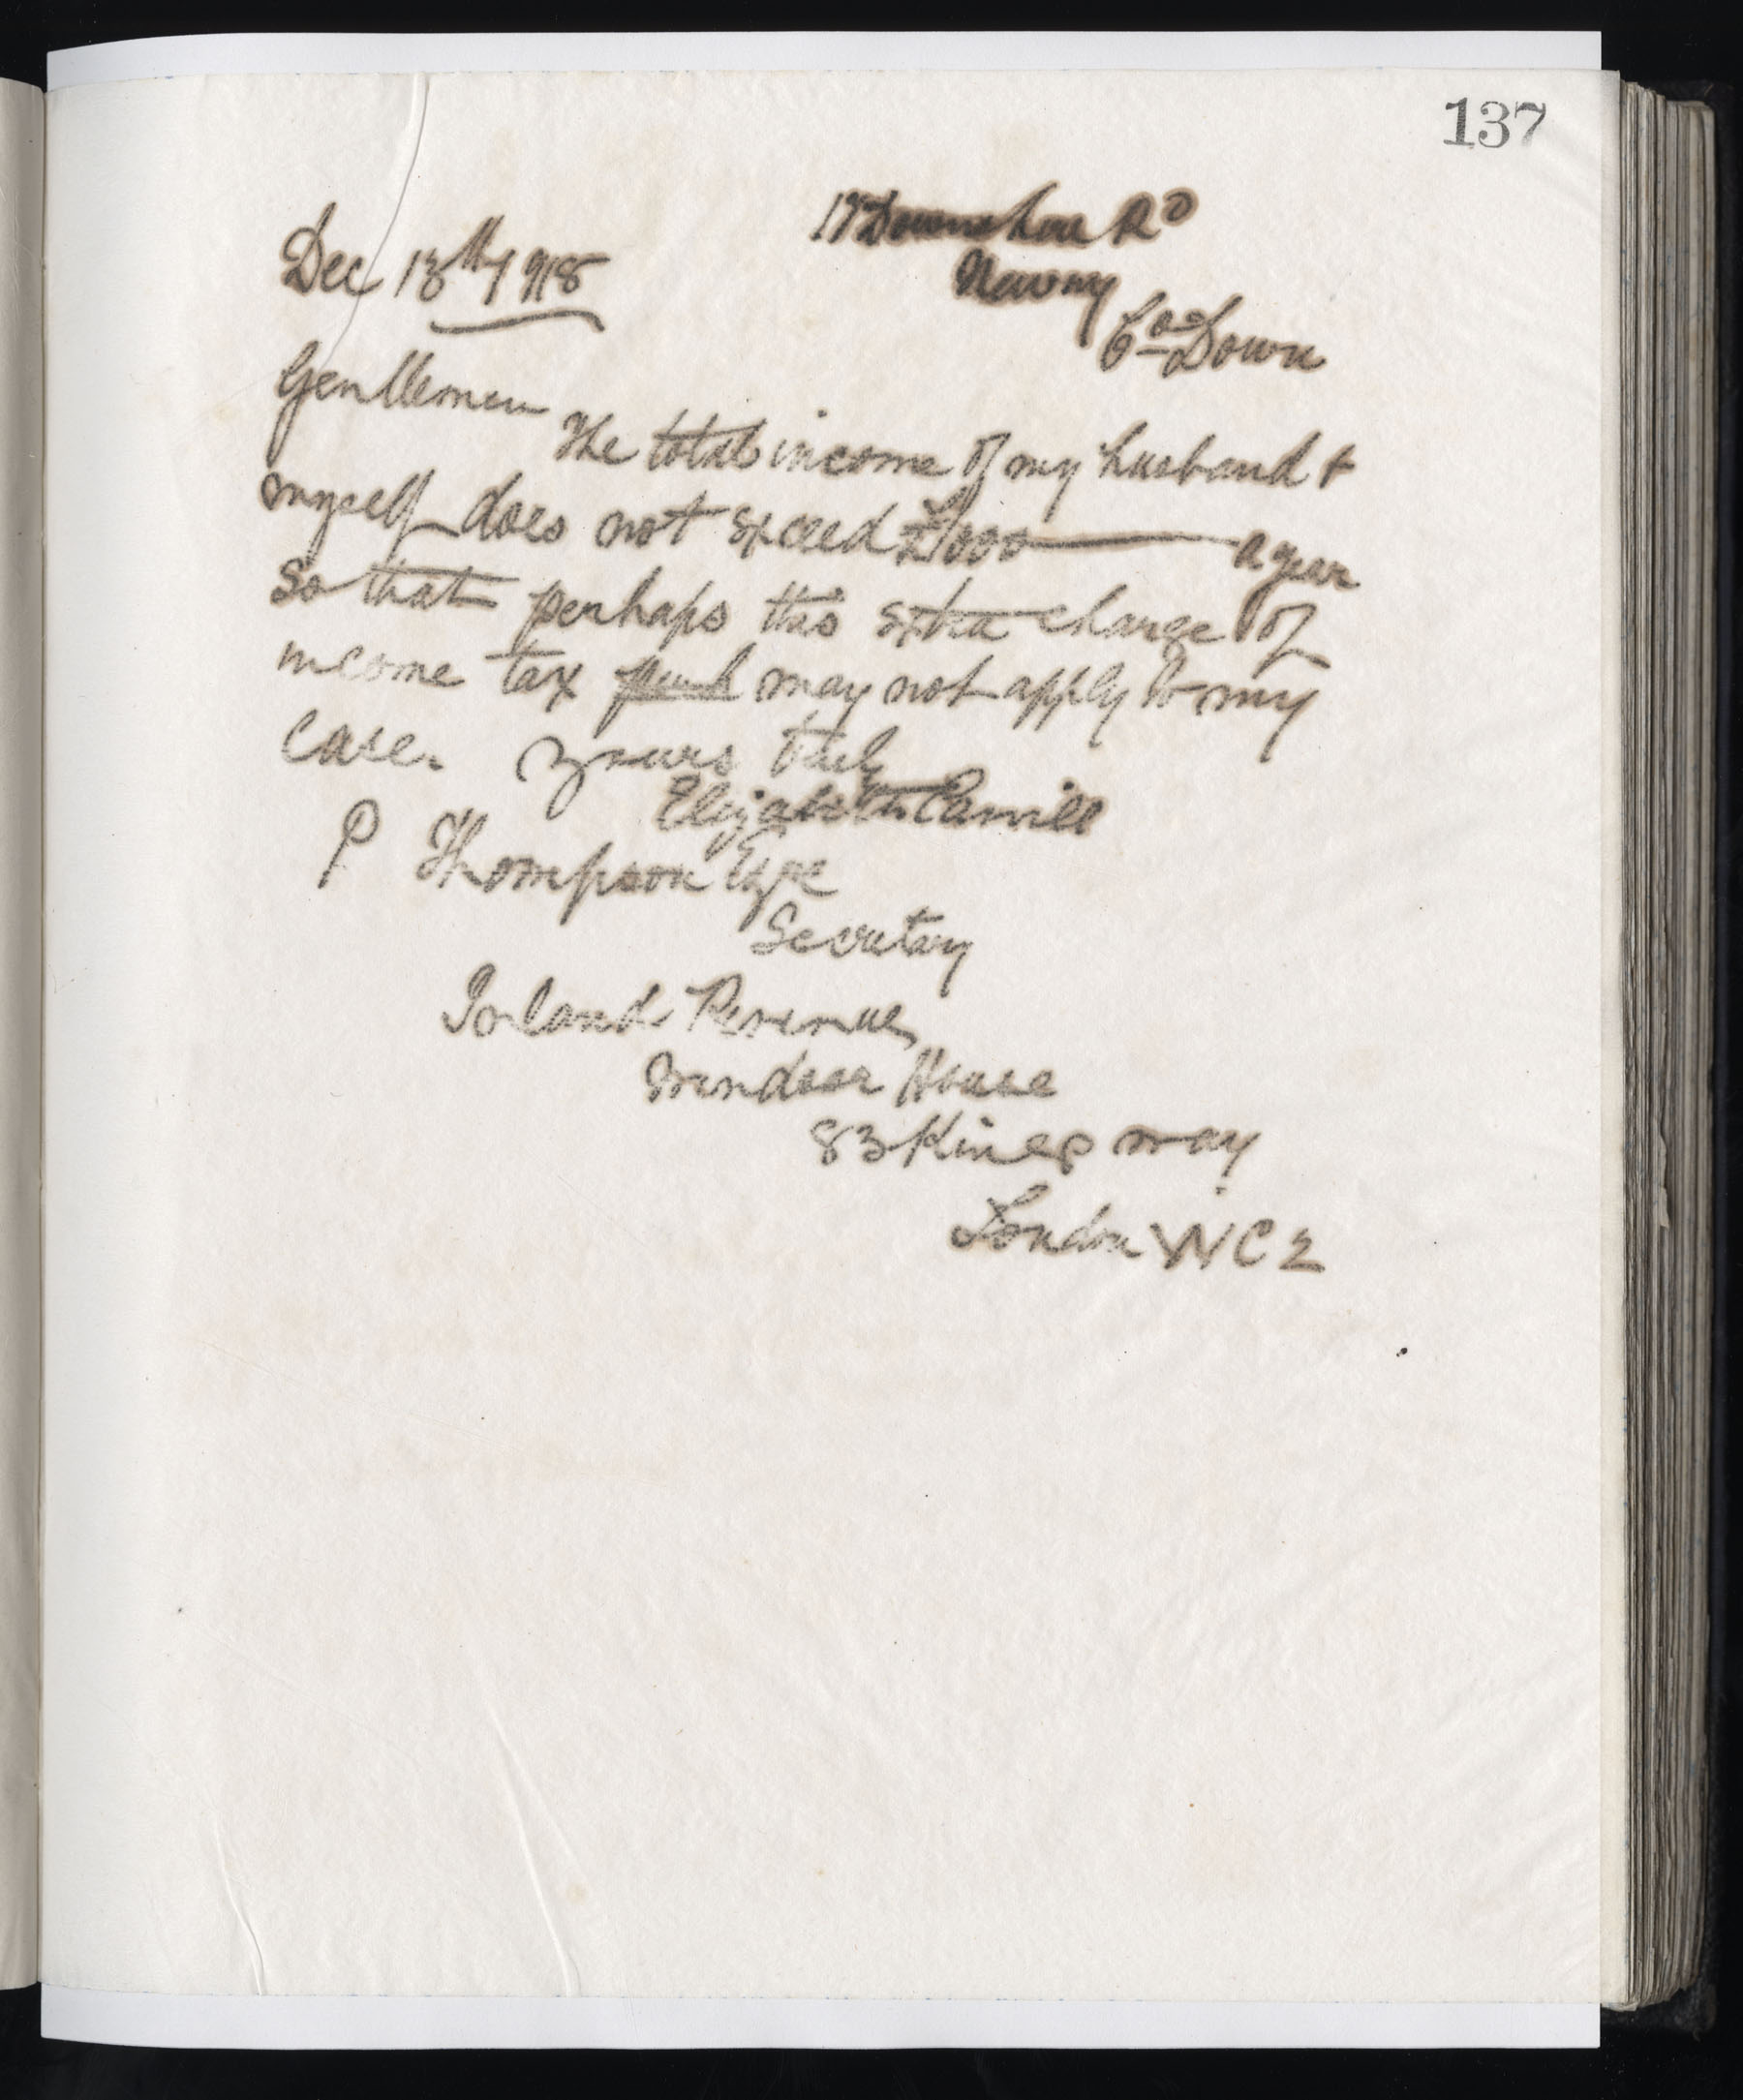 137
Downshire Rd
Dec 13th 1918
Newry
Co Down
Gentlemen
The total income of my husband &
myself does not exceed £1000 a year
So that perhaps this extra charge of
income tax may not apply to my
case. Yours truly
Elizabeth Carvill
P Thompson Esqre
Secretary
Inland Revenue
Windsor House
83 Kings way
London WC2